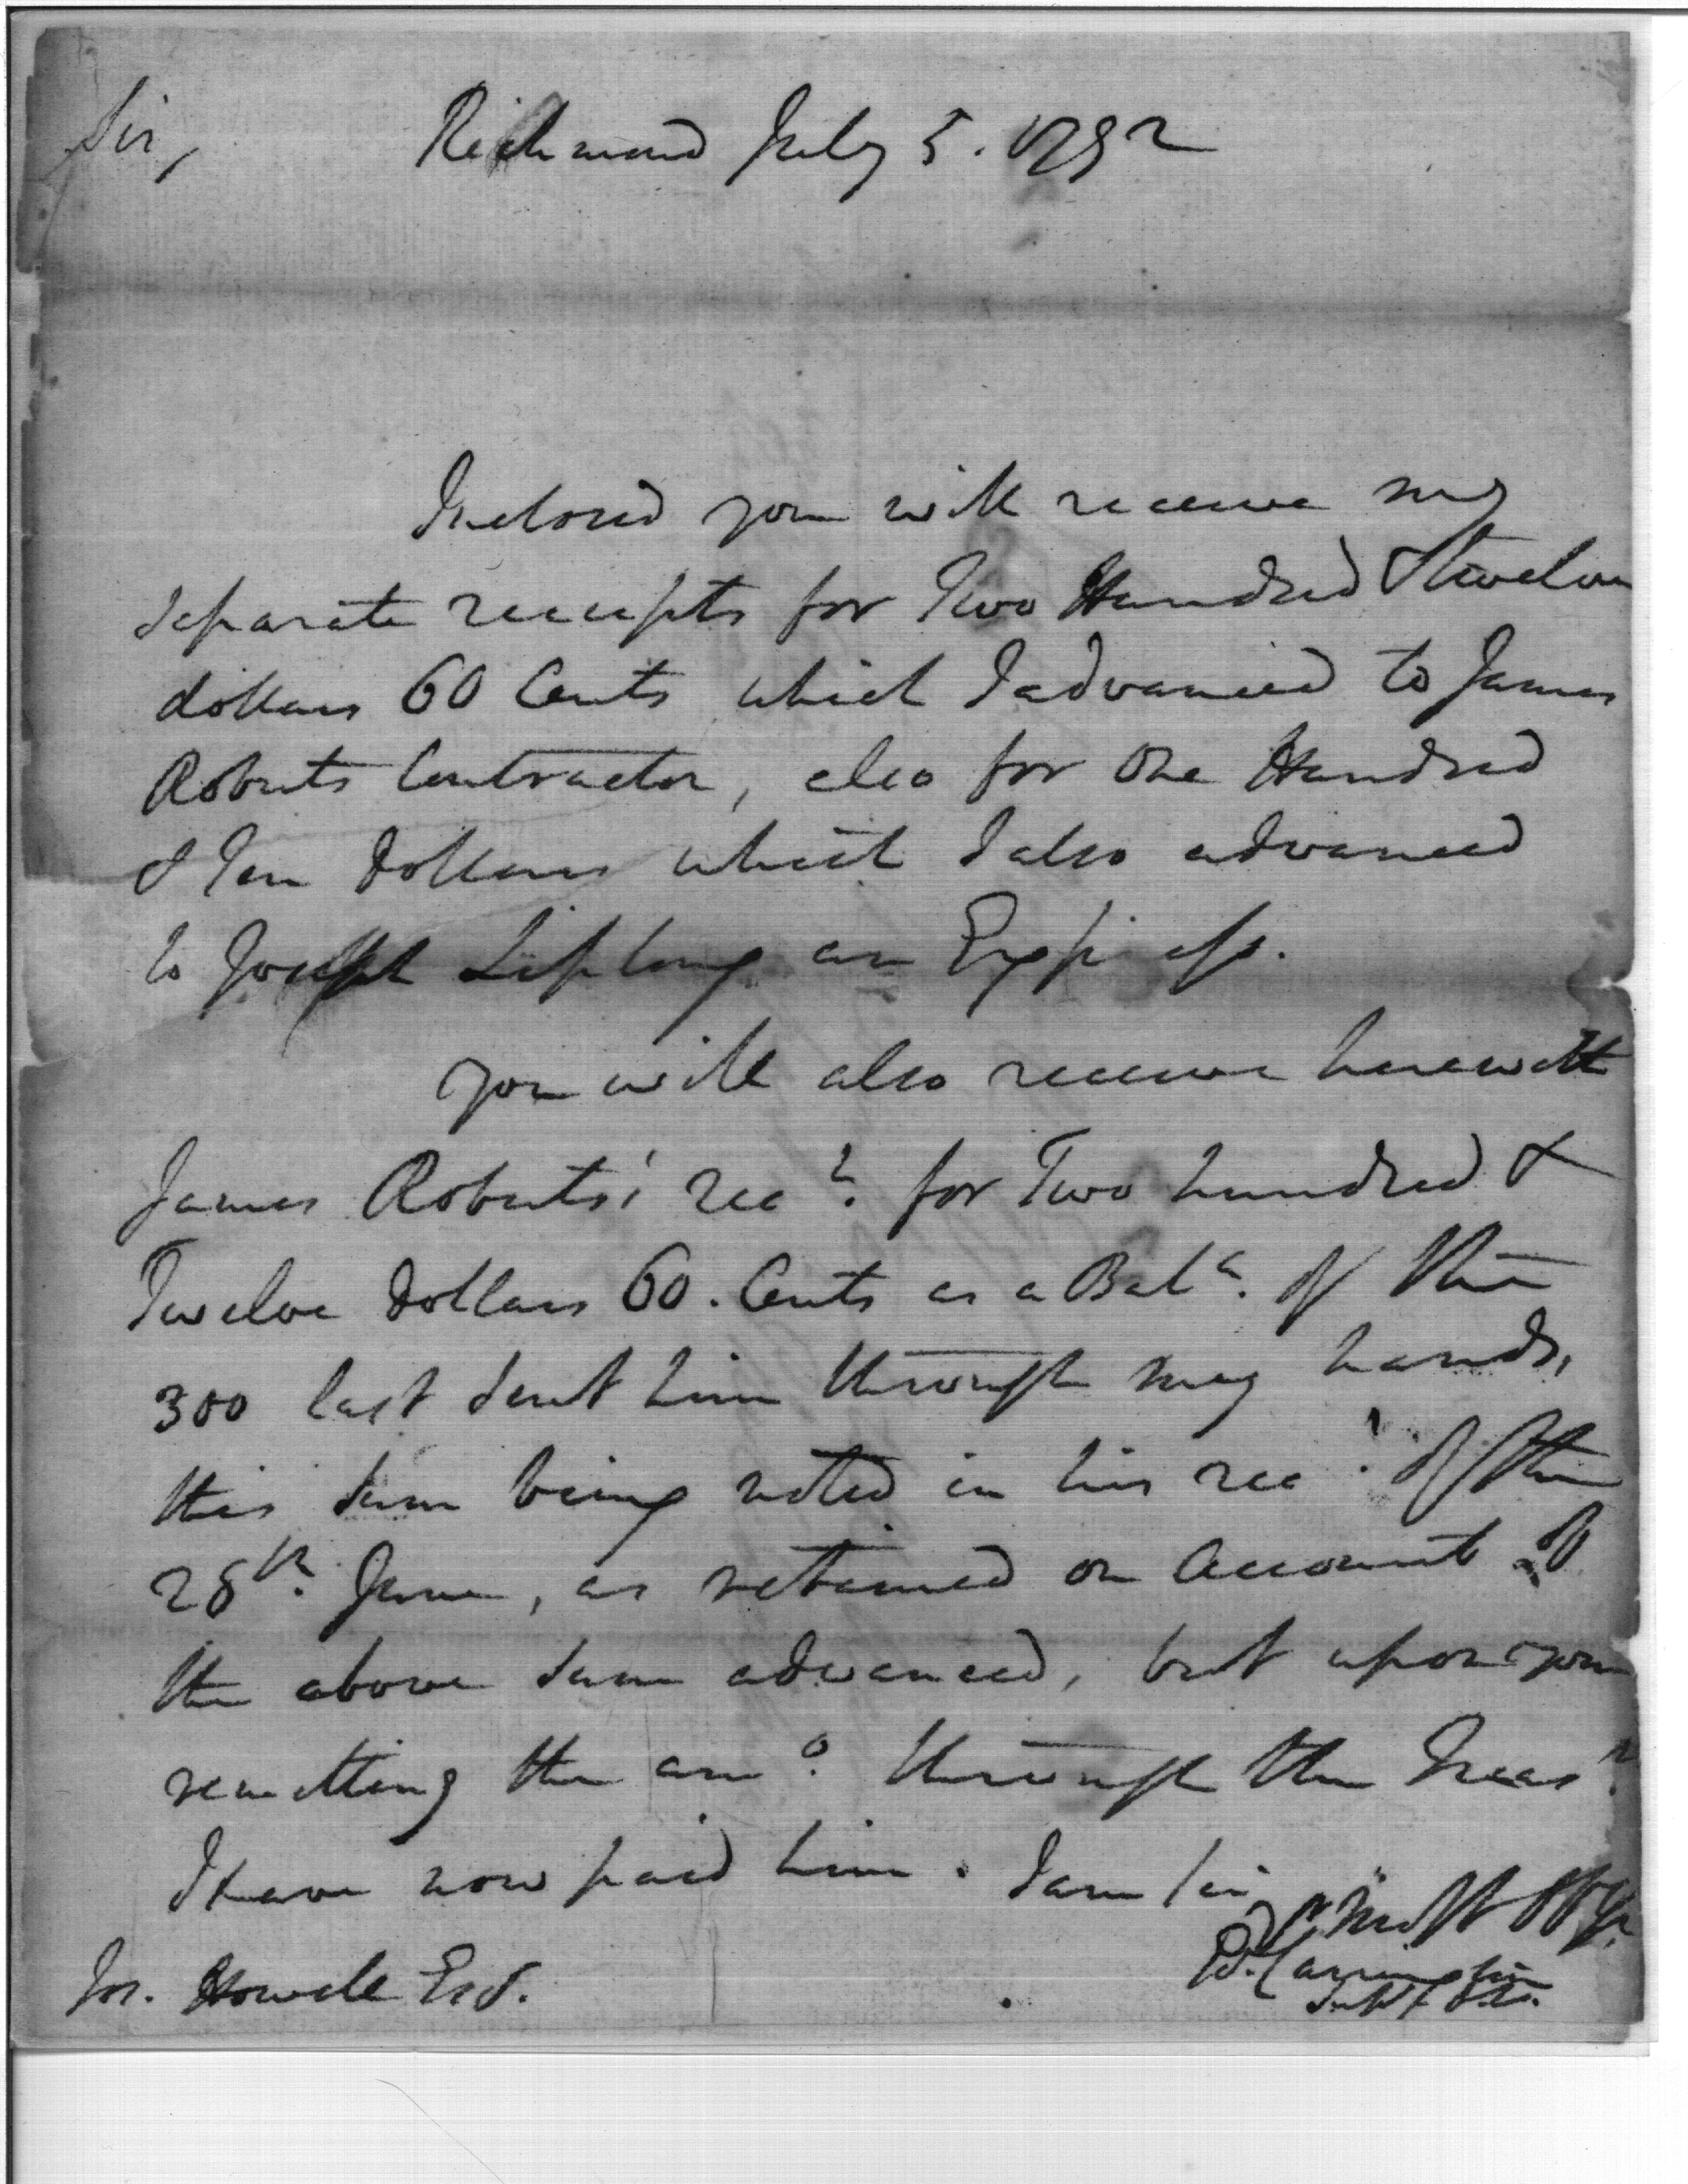 Sir,
Richmond July 5. 1792
Inclosed you will receive my
separate receipts for Two Hundred & twelve
dollars 60 Cents which I advanced to James
Roberts Contractor, also for One Hundred
& Ten Dollars which I also advanced
to Joseph Liplong an Express.
you will also receive herewith
James Roberts' rect. for Two hundred &
Twelve Dollars 60. Cents as a Bale. of the
300 last sent him through my hands,
this sum being noted in his rect. of the
28th. June, as retained on Account of
the above sum advanced, but upon your
remitting the amo. through the Treasr.
I have now paid him. I am Sir
yr. Most Ob
Ed. Carrington
Jos. Howell Esq.